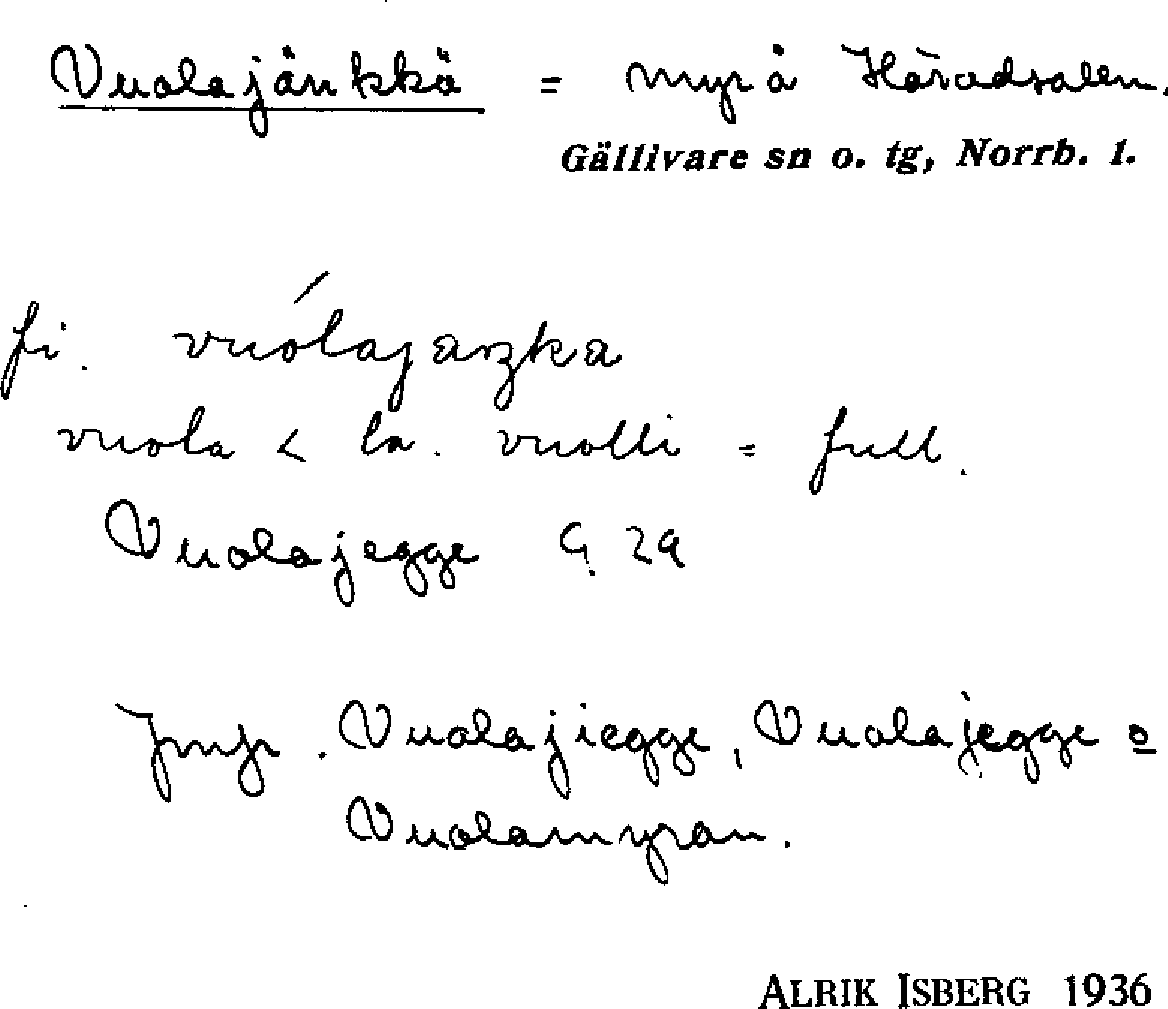 Vuolajänkkä = myr å Häradsallm.
Gällivare sn o. tg, Norrb. l.
fi. vuólajaŋka
vuola < la. vuolli = full.
Vuolajegge G 29
Jmfr. Vuolajiegge, Vuolajegge o
Vuolamyran.
ALRIK ISBERG 1936